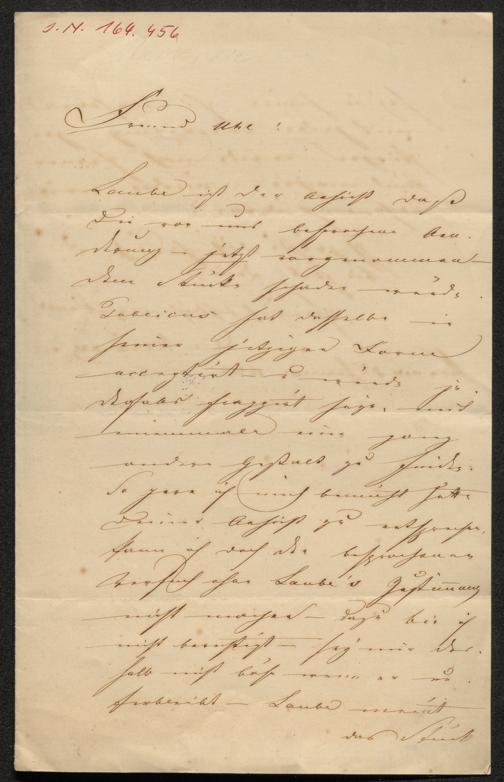 J.N. 164.456
Freund Uhl!
Laube ist der Ansicht daß
die von uns besprochene Aen-
derung – jetzt vorgenommen –
dem Stücke schaden würde.
hat dasselbe in
seiner jetzigen Form
acceptirt – u würde ja
deshalb frappirt sein, mit
einemmale eine ganz
andere Gestalt zu finden.
So gern ich mich bemüht hätte
Deiner Ansicht zu entsprechen,
kann ich doch den besprochenen
Versuch ohne Laube's Zustimmung
nicht machen – dazu bin ich
nicht berechtigt – sey mir des-
halb nicht böse wenn er un
terbleibt – Laube meint
das Stück